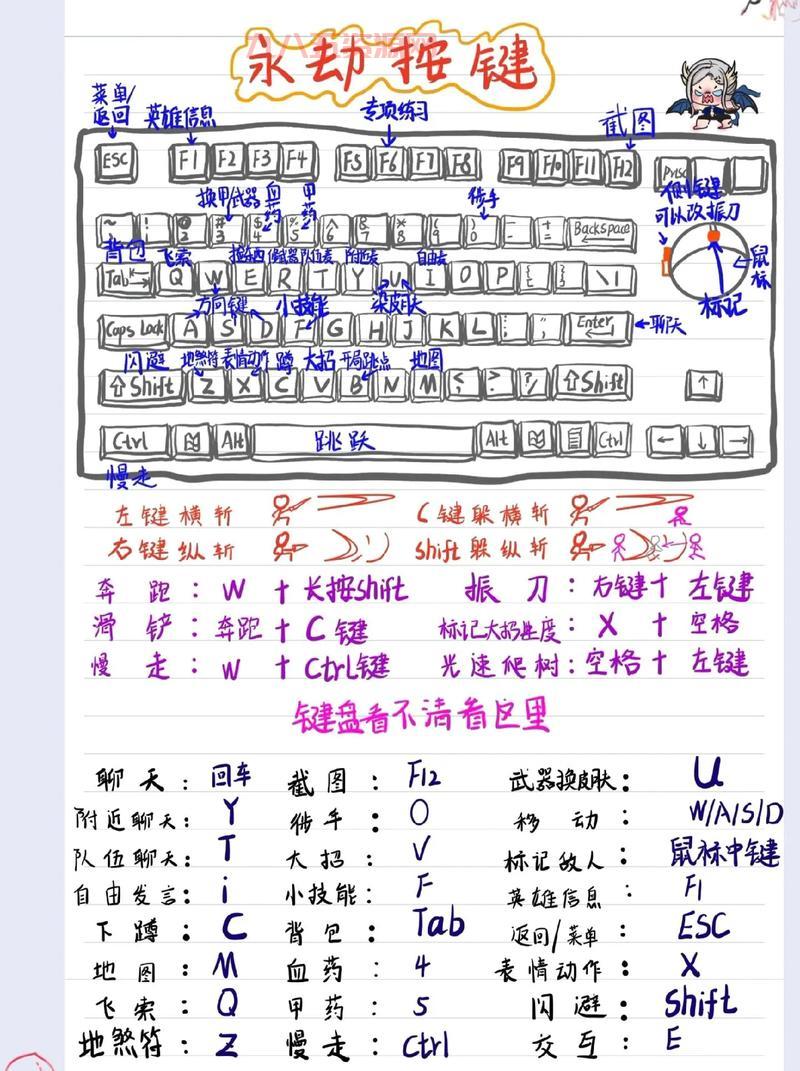 永劫按键
菜单/返回
英雄信息
专项练习
截图
ESC F1 F2 F3 F4 F5 F6 F7 F8 F9 F10 F11 F12 Prtsc
换甲 武器 血药 甲药 徒手
侧键可以改振刀
~ ! @2 #3 $4 %5 ^6 &7 *8 (9 )0 - += Backspace
鼠标
标记
背包 飞索 队伍麦 附近麦 自由麦
Tab Q W E R T Y U I O P \|
方向键 小技能 染皮肤
Caps Lock A S D F G H J K L Enter 聊天
闪避 地煞符 表情动作 蹲 大招 开局跳点 地图
Shift Z X C V B N M Shift ↑
Ctrl Alt 跳跃 Alt Ctrl ← ↓ →
慢走
左键横斩 C键躲横斩
右键纵斩 shift躲纵斩
奔跑：W+长按shift 振刀：右键+左键
滑铲：奔跑+C键 标记大招进度：X+空格
慢走：W+Ctrl键 光速爬树：空格+左键
键盘看不清看这里
聊天：回车 截图：F12 武器换皮肤：U
附近聊天：Y 徒手：0 移动：W/A/S/D
队伍聊天：T 大招：V 标记敌人：鼠标中键
自由发言：i 小技能：F 英雄信息：F1
下蹲：C 背包：Tab 返回/菜单：ESC
地图：M 血药：4 表情动作：X
飞索：Q 甲药：5 闪避：Shift
地煞符：Z 慢走：Ctrl 交互：E